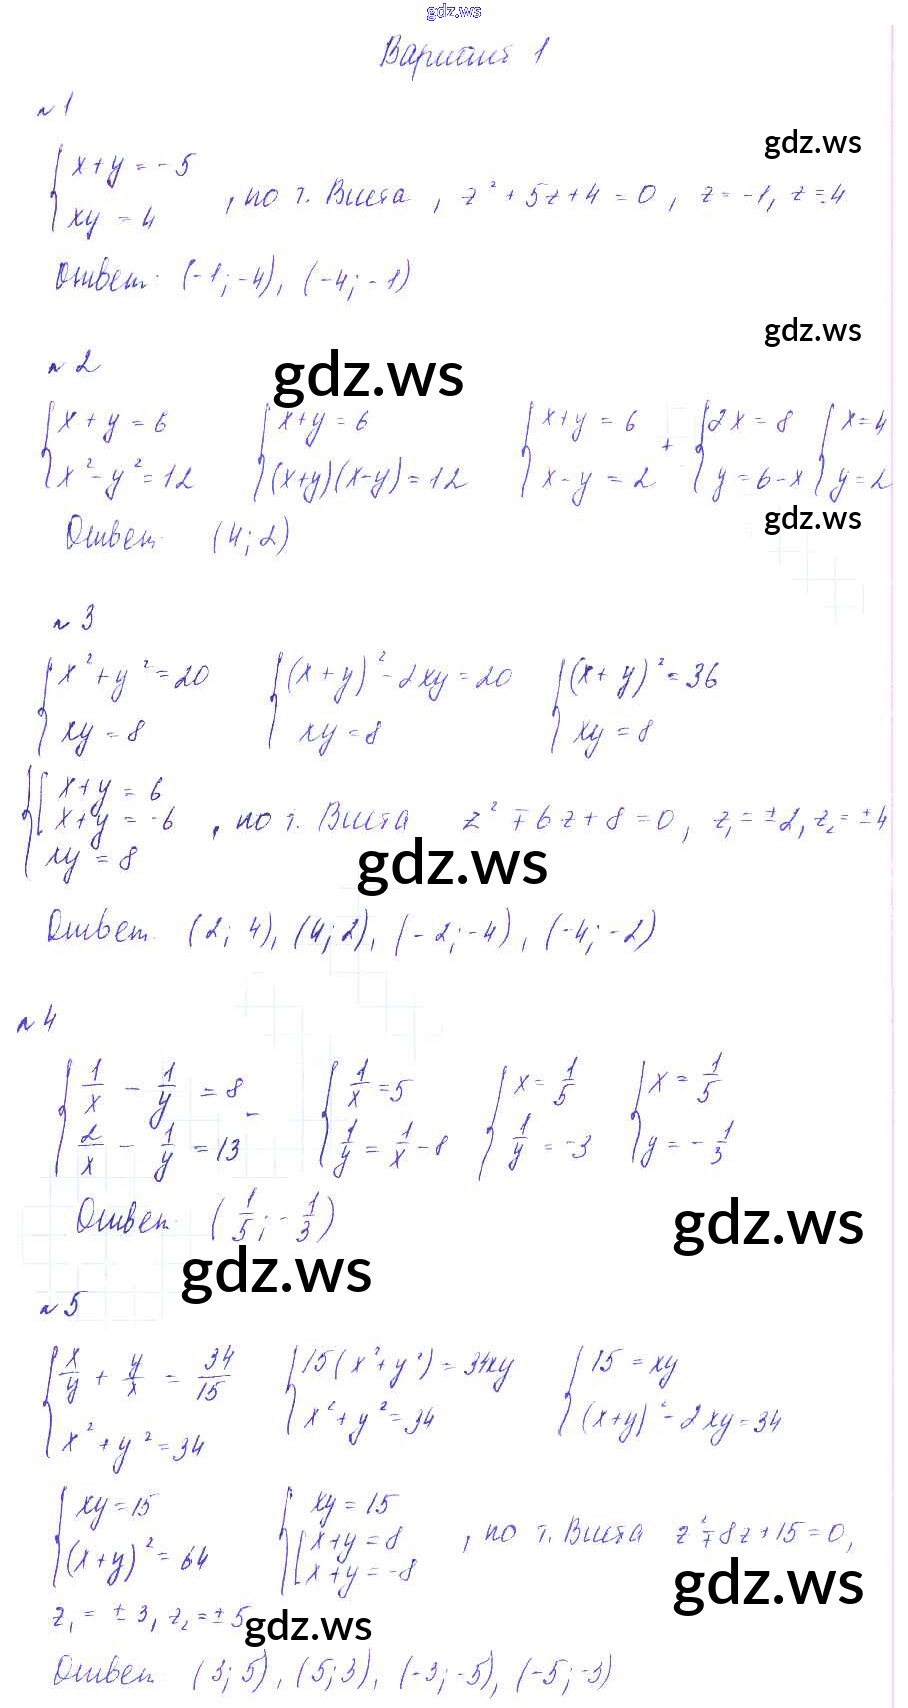 gdz.ws
Вариант 1
n 1
gdz.ws
{ x + y = -5
xy = 4 , по т. Виета, z² + 5z + 4 = 0, z = -1, z = -4
Ответ: (-1; -4), (-4; -1)
gdz.ws
n 2
gdz.ws
{ x + y = 6 { x + y = 6 { x + y = 6 + { 2x = 8 { x = 4
x² - y² = 12 (x+y)(x-y) = 12 x - y = 2 y = 6 - x y = 2
gdz.ws
Ответ: (4; 2)
n 3
{ x² + y² = 20 { (x + y)² - 2xy = 20 { (x + y)² = 36
xy = 8 xy = 8 xy = 8
{ [ x + y = 6
x + y = -6 , по т. Виета z² ∓ 6z + 8 = 0, z₁ = ±2, z₂ = ±4
xy = 8
gdz.ws
Ответ: (2; 4), (4; 2), (-2; -4), (-4; -2)
n 4
{ 1/x - 1/y = 8 - { 1/x = 5 { x = 1/5 { x = 1/5
2/x - 1/y = 13 1/y = 1/x - 8 1/y = -3 y = -1/3
Ответ: (1/5; -1/3)
gdz.ws
gdz.ws
n 5
{ x/y + y/x = 34/15 { 15(x² + y²) = 34xy { 15 = xy
x² + y² = 34 x² + y² = 34 (x+y)² - 2xy = 34
{ xy = 15 { xy = 15
(x+y)² = 64 [ x + y = 8
x + y = -8 , по т. Виета z² ∓ 8z + 15 = 0,
gdz.ws
z₁ = ±3, z₂ = ±5
gdz.ws
Ответ: (3; 5), (5; 3), (-3; -5), (-5; -3)